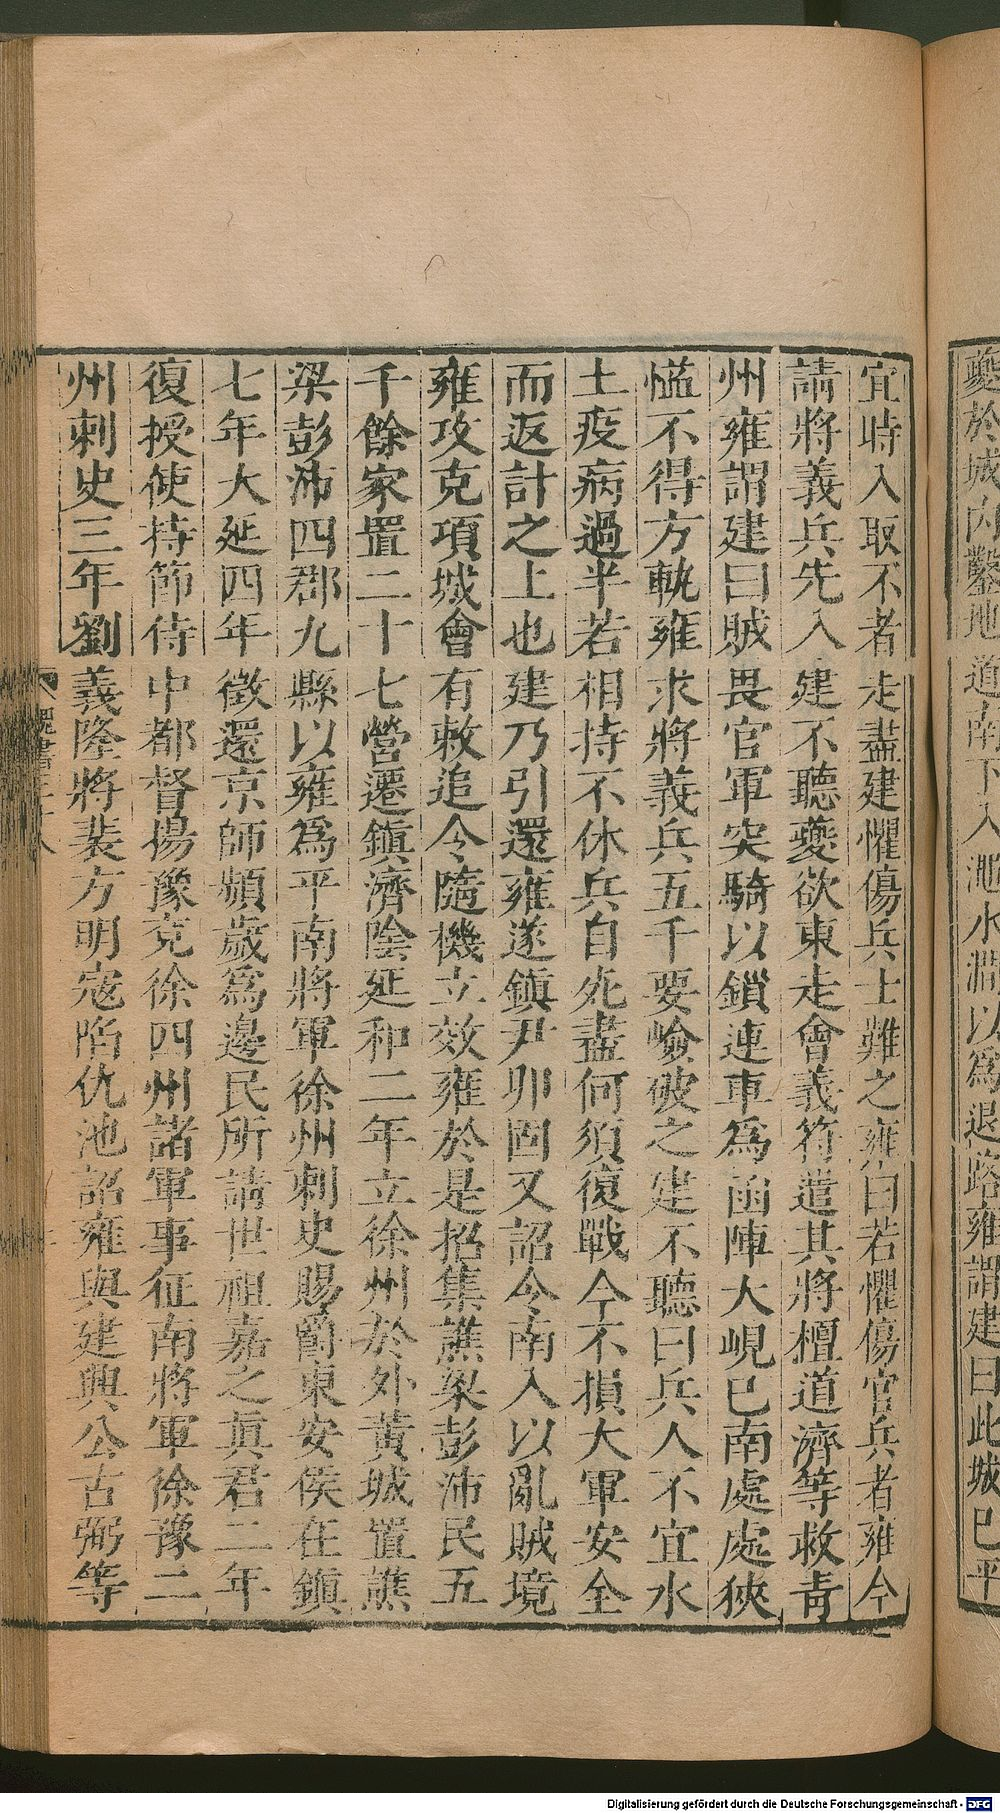 夔於城內鑿地道南下入澠水澗以爲退路雍謂建曰此城已平
宜時入取不者走盡建懼傷兵士難之雍曰若懼傷官兵者雍今
請將義兵先入建不聽夔欲東走會義符遣其將檀道濟等救青
州雍謂建曰賊畏官軍突騎以鎖連車爲函陣大峴已南處處狹
隘不得方軌雍求將義兵五千要嶮破之建不聽曰兵人不宜水
土疫病過半若相持不休兵自死盡何須復戰今不損大軍安全
而返計之上也建乃引還雍遂鎮尹卯固又詔令南入以亂賊境
雍攻克項城會有敕追令隨機立效雍於是招集譙梁彭沛民五
千餘家置二十七營遷鎮濟陰延和二年立徐州於外黃城置譙
梁彭沛四郡九縣以雍爲平南將軍徐州刺史賜爵東安侯在鎮
七年大延四年徵還京師頻歲爲邊民所請世祖嘉之真君二年
復授使持節侍中都督揚豫兗徐四州諸軍事征南將軍徐豫二
州刺史三年劉義隆將裴方明寇陷仇池詔雍與建興公古弼等
魏書三十八
Digitalisierung gefördert durch die Deutsche Forschungsgemeinschaft - DFG